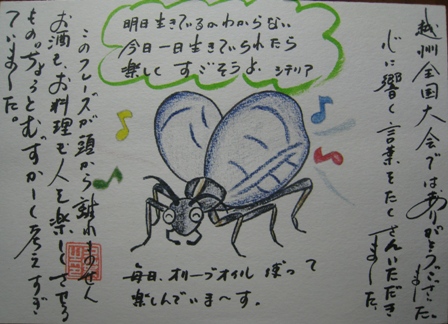 越州全国大会ではありがとうございました。
心に響く言葉をたくさんいただき
ました。
明日生きているかわからない
今日一日生きていられたら
楽しくすごそうよ シテリア
このフレーズが頭から離れません
お酒も、お料理も人を楽しくさせる
もの。ちょっとむずかしく考えすぎ
ていました。
毎日、オリーブオイル ぼって
楽しんでいま〜す。